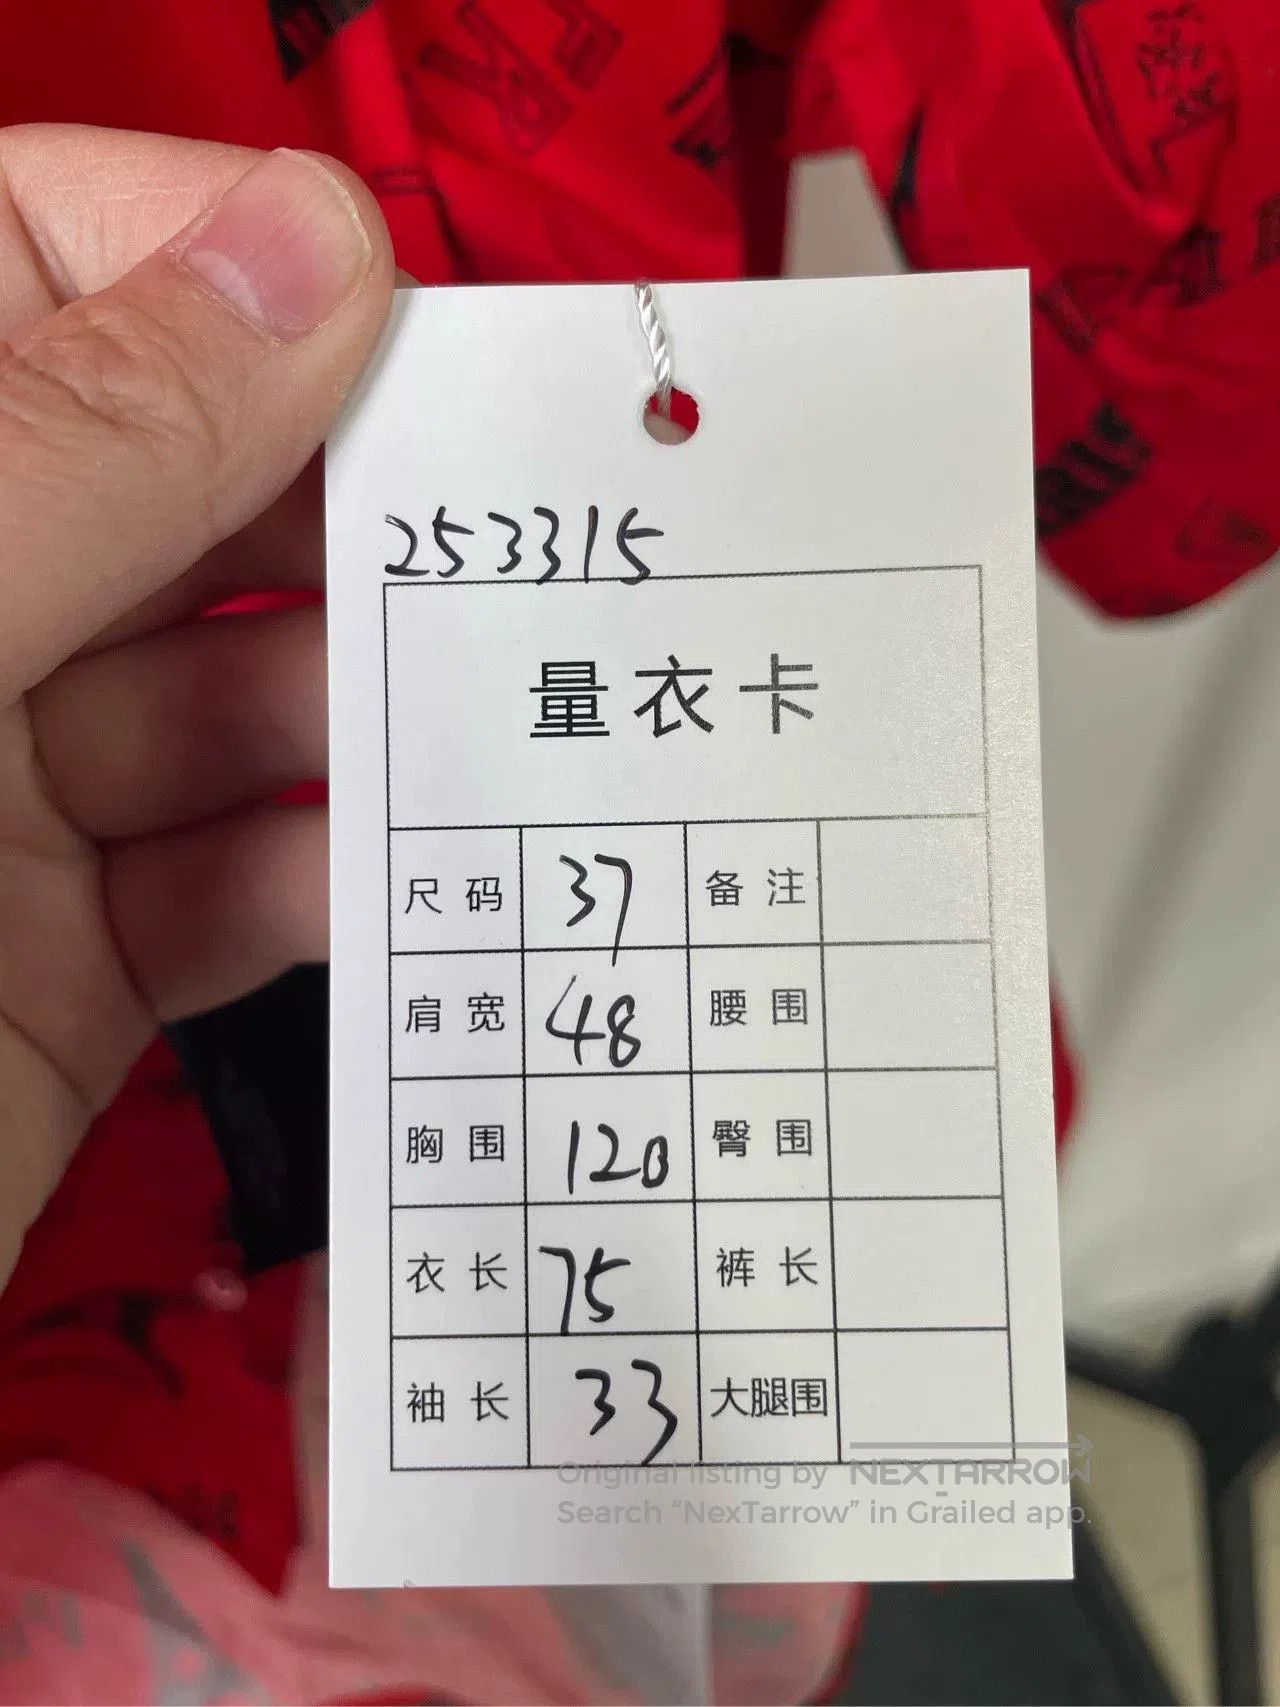 253315
量衣卡
尺码 37 备注
肩宽 48 腰围
胸围 120 臀围
衣长 75 裤长
袖长 33 大腿围
Original listing by NEXTARROW
Search “NexTarrow” in Grailed app.